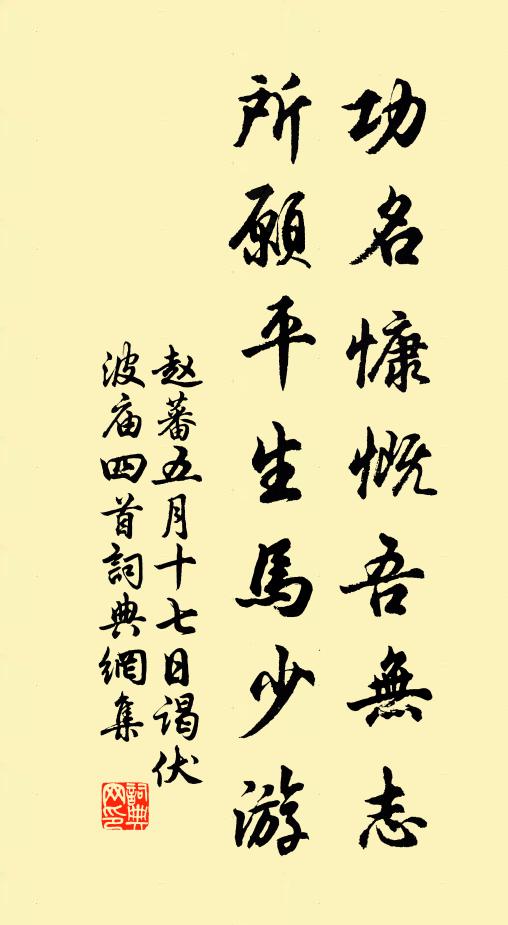 功名慷慨吾無志
所願平生馬少游
赵蕃五月十七日谒伏
波庙四首詞典網集
詞典
网印